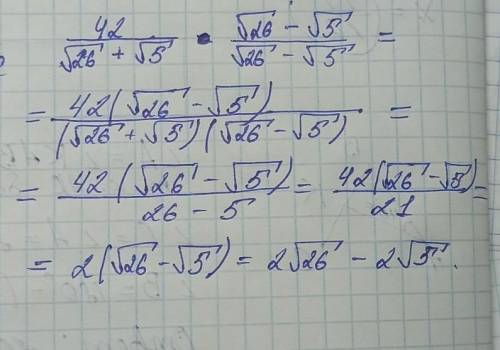 42/(√26 + √5) • (√26 − √5)/(√26 − √5) =
= 42(√26 − √5)/((√26 + √5)(√26 − √5)) =
= 42(√26 − √5)/(26 − 5) = 42(√26 − √5)/21 =
= 2(√26 − √5) = 2√26 − 2√5.